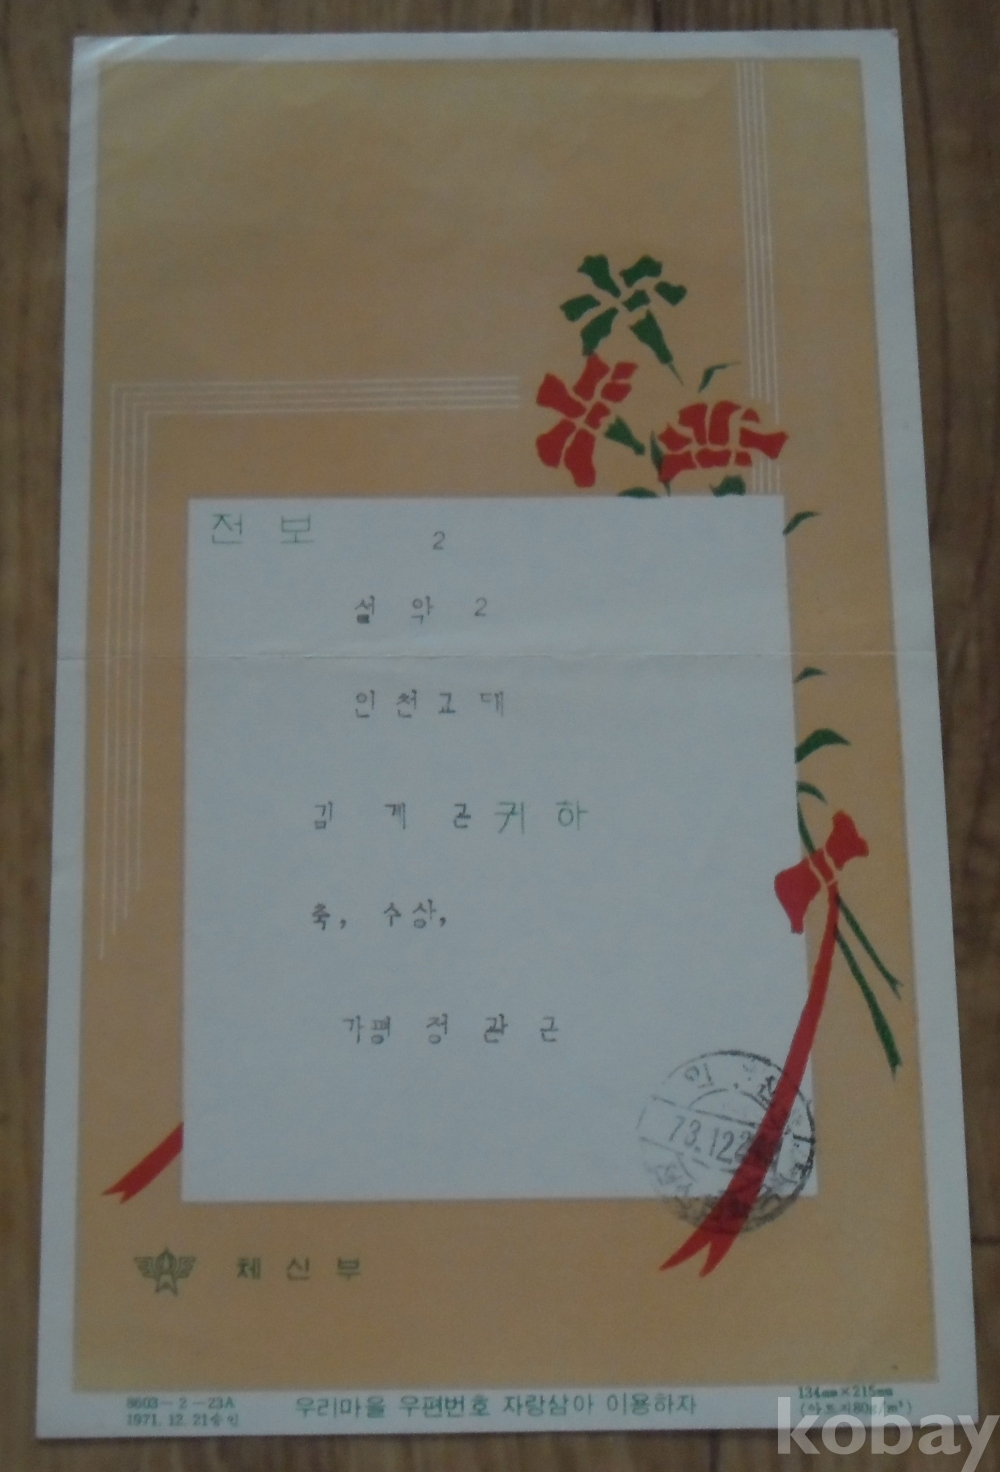 전보 2
설 악 2
인천교대
김 계 근 귀하
축, 수상,
가평 정 관 근
인 천
73.12.2
체신부
8603-2-23A
1971. 12. 21승인
우리마을 우편번호 자랑삼아 이용하자
134mm×215mm
(아트지80g/m²)
kobay